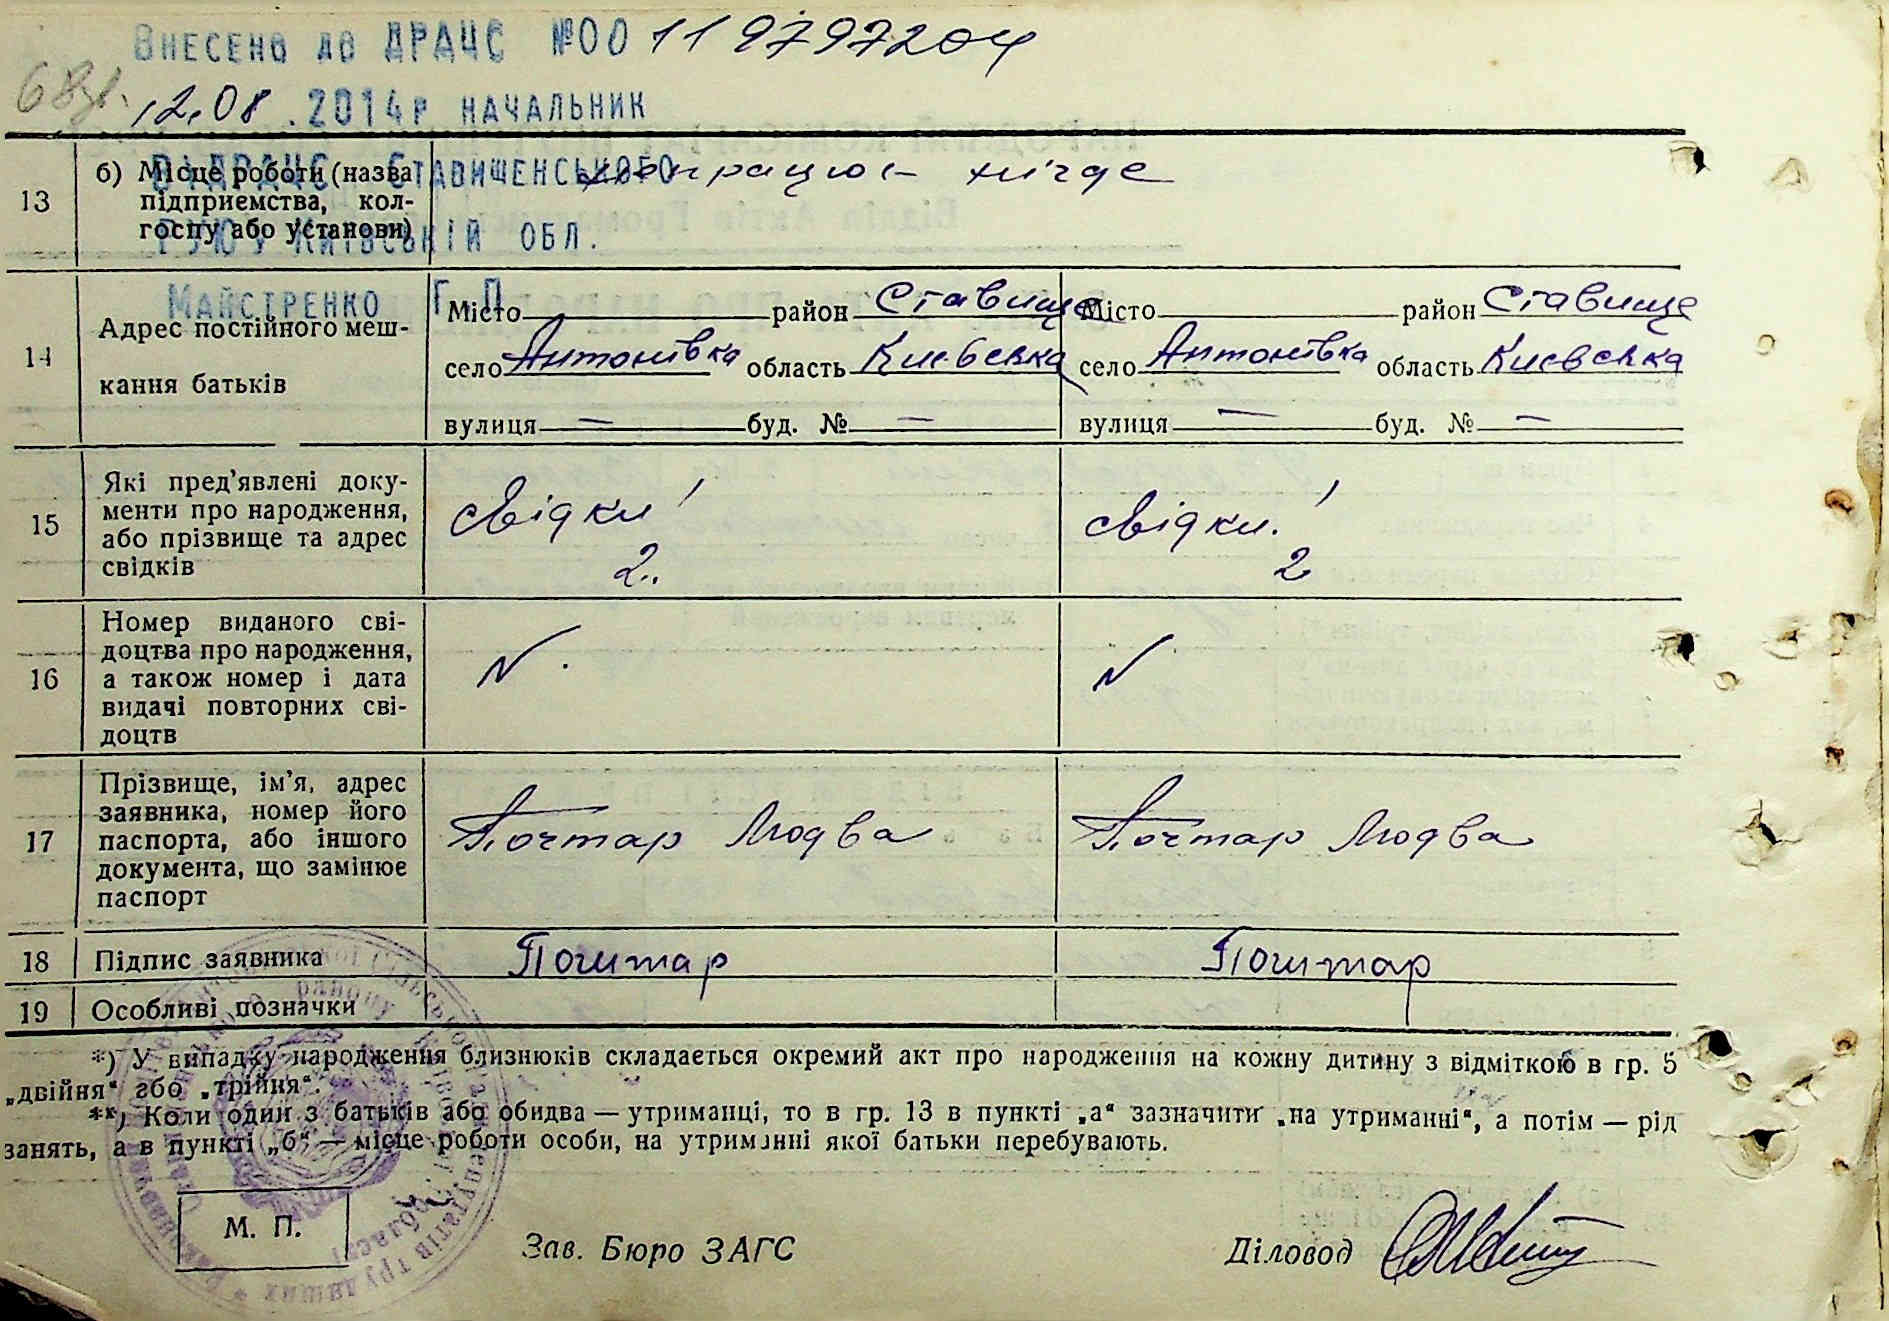 Внесено до ДРАЦС №00 119797204
68
12.08.2014р начальник
ВДРАЦС Ставищенського
РУЮ у Київській обл.
Майстренко Г. П
13 б) Місце роботи (назва
підприємства, кол-
госпу або установи)
працює нігде
14 Адрес постійного меш-
кання батьків
Місто район Ставище
село Антонівка область Києвська
вулиця — буд. № —
Місто район Ставище
село Антонівка область Києвська
вулиця — буд. № —
15 Які пред'явлені доку-
менти про народження,
або прізвище та адрес
свідків
свідки!
2.
свідки!
2
16 Номер виданого сві-
доцтва про народження,
а також номер і дата
видачі повторних сві-
доцтв
17 Прізвище, ім'я, адрес
заявника, номер його
паспорта, або іншого
документа, що замінює
паспорт
Почтар Людва
Почтар Людва
18 Підпис заявника
Поштар
Поштар
19 Особливі позначки
*) У випадку народження близнюків складається окремий акт про народження на кожну дитину з відміткою в гр. 5
„двійня“ або „трійня“.
**) Коли один з батьків або обидва — утриманці, то в гр. 13 в пункті „а“ зазначити „на утриманні“, а потім — рід
занять, а в пункті „б“ — місце роботи особи, на утриманні якої батьки перебувають.
М. П.
Зав. Бюро ЗАГС
Діловод